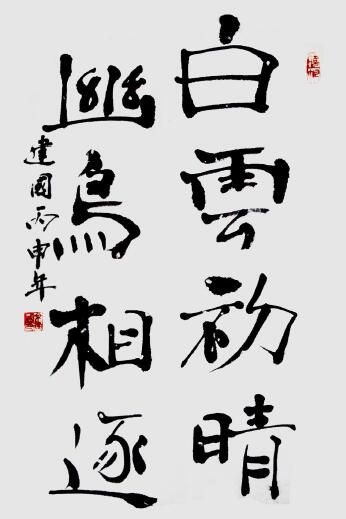 白雲初晴
幽鳥相逐
建國丙申年